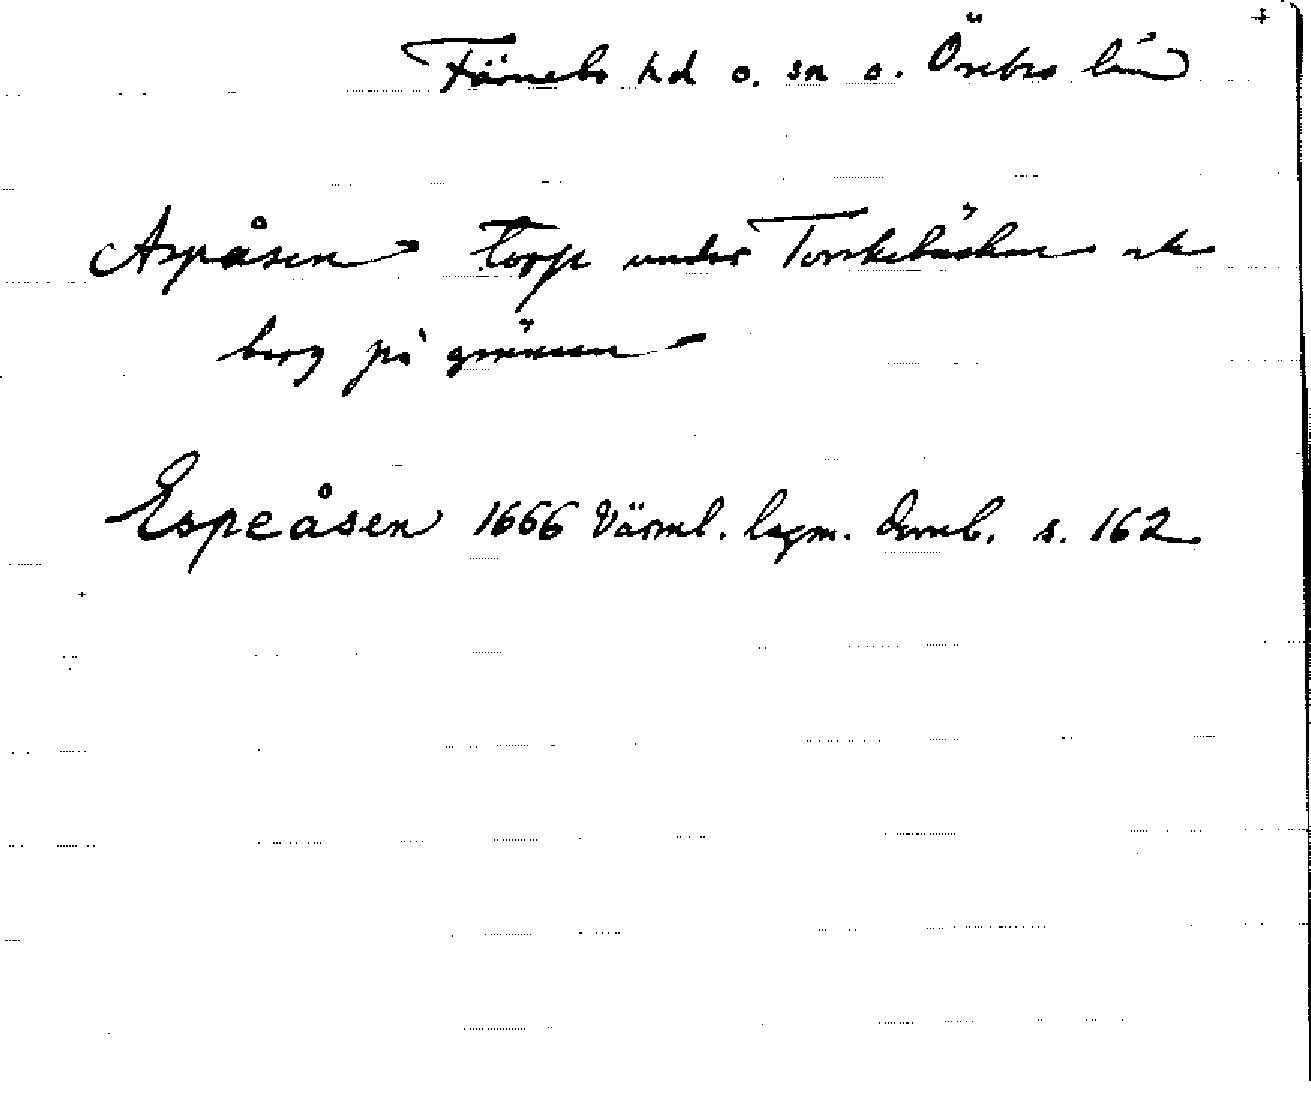 Färnebo hd o. sn o. Örebro län
Aspåsen torp under Torskebäcken o
berg på gränsen
Espeåsen 1666 Värml. lagm. domb. s. 162